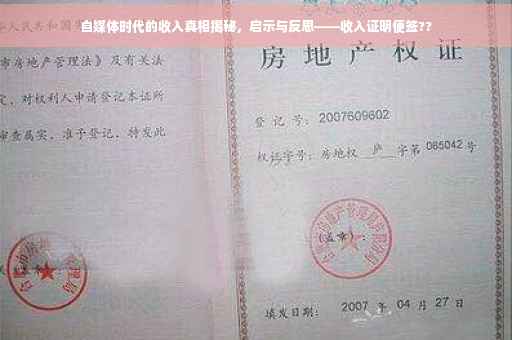 自媒体时代的收入真相揭秘，启示与反思——收入证明便签??
人民共和国
市房地产管理法》及有关
定，对权利人申请登记本证所
审查属实，准予登记，特发此
房地产权证
登记号：2007609602
权证字号：房地权 庐 字第 085042 号
(盖章)：
填发日期： 2007 年 04 月 27 日